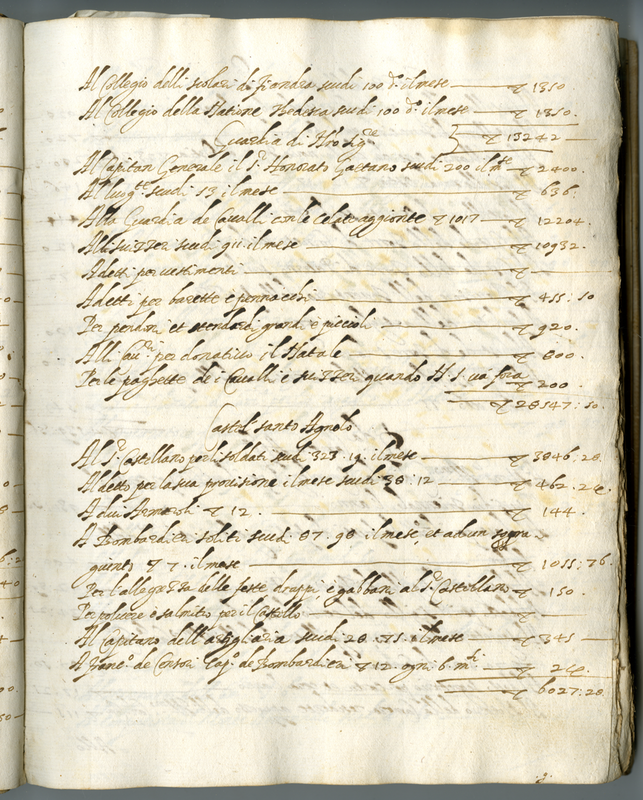 Al Collegio delli scolari di fiandra scudi 100 d. il mese ▽ 1350
Al Collegio della Natione Tedesca scudi 100 d. il mese ▽ 1350.
Guardia di Nro Sig.re ▽ 13242
Al Capitan Generale il S.r Honorato Gaetano scudi 200 il m.e ▽ 2400.
Al luog.te scudi 53 il mese ▽ 636.
Alla Guardia de Cavalli con le celate aggionte ▽ 1017 ▽ 12204.
Alli suizzeri scudi 911 il mese ▽ 10932.
A detti per vestimenti ▽
A detti per barette e pennacchi ▽ 455 : 50
Per pendoni et stendardi grandi e piccoli ▽ 920.
Alli per donativo il Natale ▽ 800.
Per le paghette de i Cavalli e suizzeri quando N. S. va fora ▽ 200.
▽ 28547 : 50.
Castel santo Agnolo
Al S.r Castellano per li soldati scudi 323 . 19 . il mese ▽ 3846 : 28.
Al detto per la sua provisione il mese scudi 38 : 12 ▽ 462 . 24.
A dui Armaroli ▽ 12 . ▽ 144.
A Bombardieri soliti scudi 87 . 98 . il mese, et ad un sopra
giunto ▽ 7 . il mese ▽ 1055 : 76
Per l'allegrezza delle feste drappi e gabbani al S.r Castellano ▽ 150.
Per polvere e salnitro per il Castello
Al Capitano dell'artigliaria scudi 28 . 75 . il mese ▽ 345
A franc.o de Capo de Bombardieri ▽ 12 . ogni 6 . mesi ▽ 24.
▽ 6027 : 28.